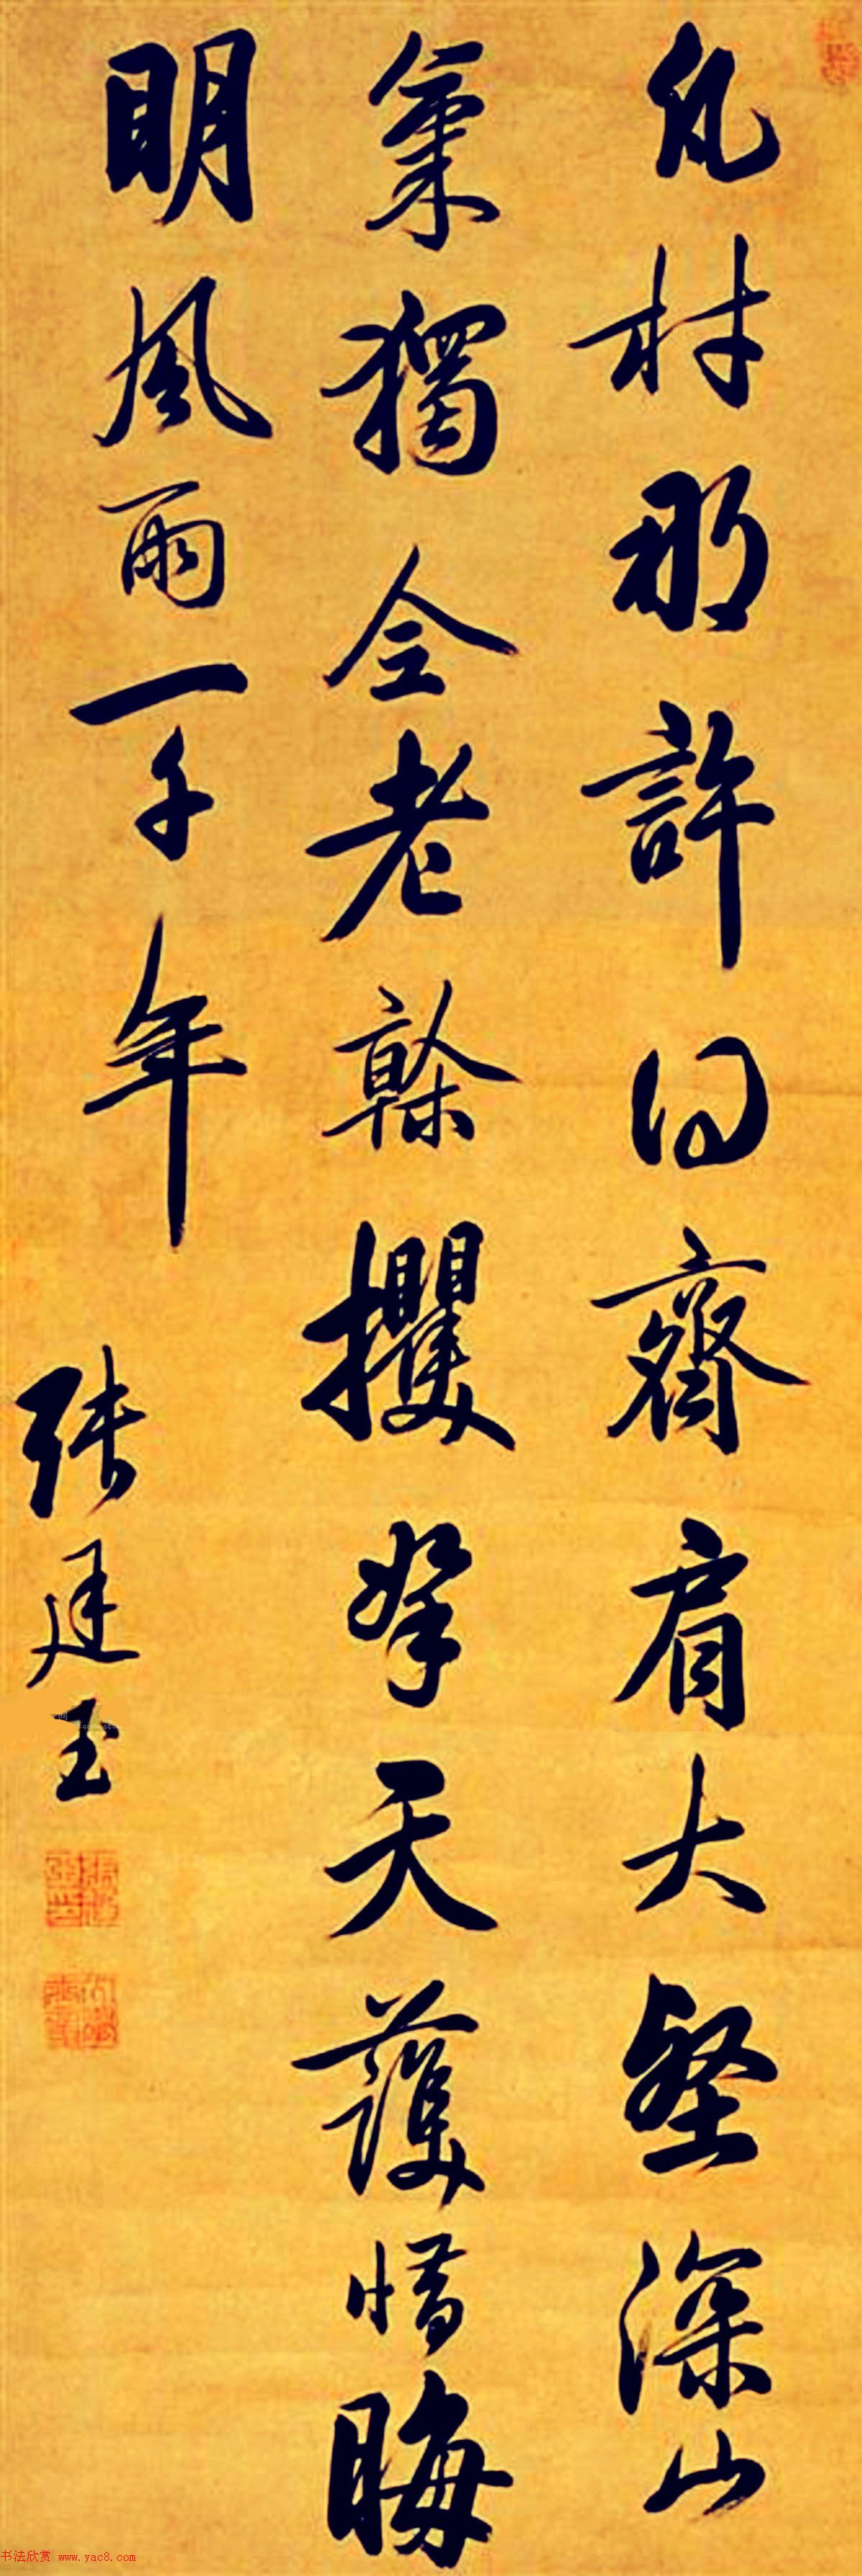 凡材那許得齊肩大壑深山
氣獨全老榦攫拏天護惜晦
明風雨一千年
張廷玉
书法欣赏 www.yac8.com